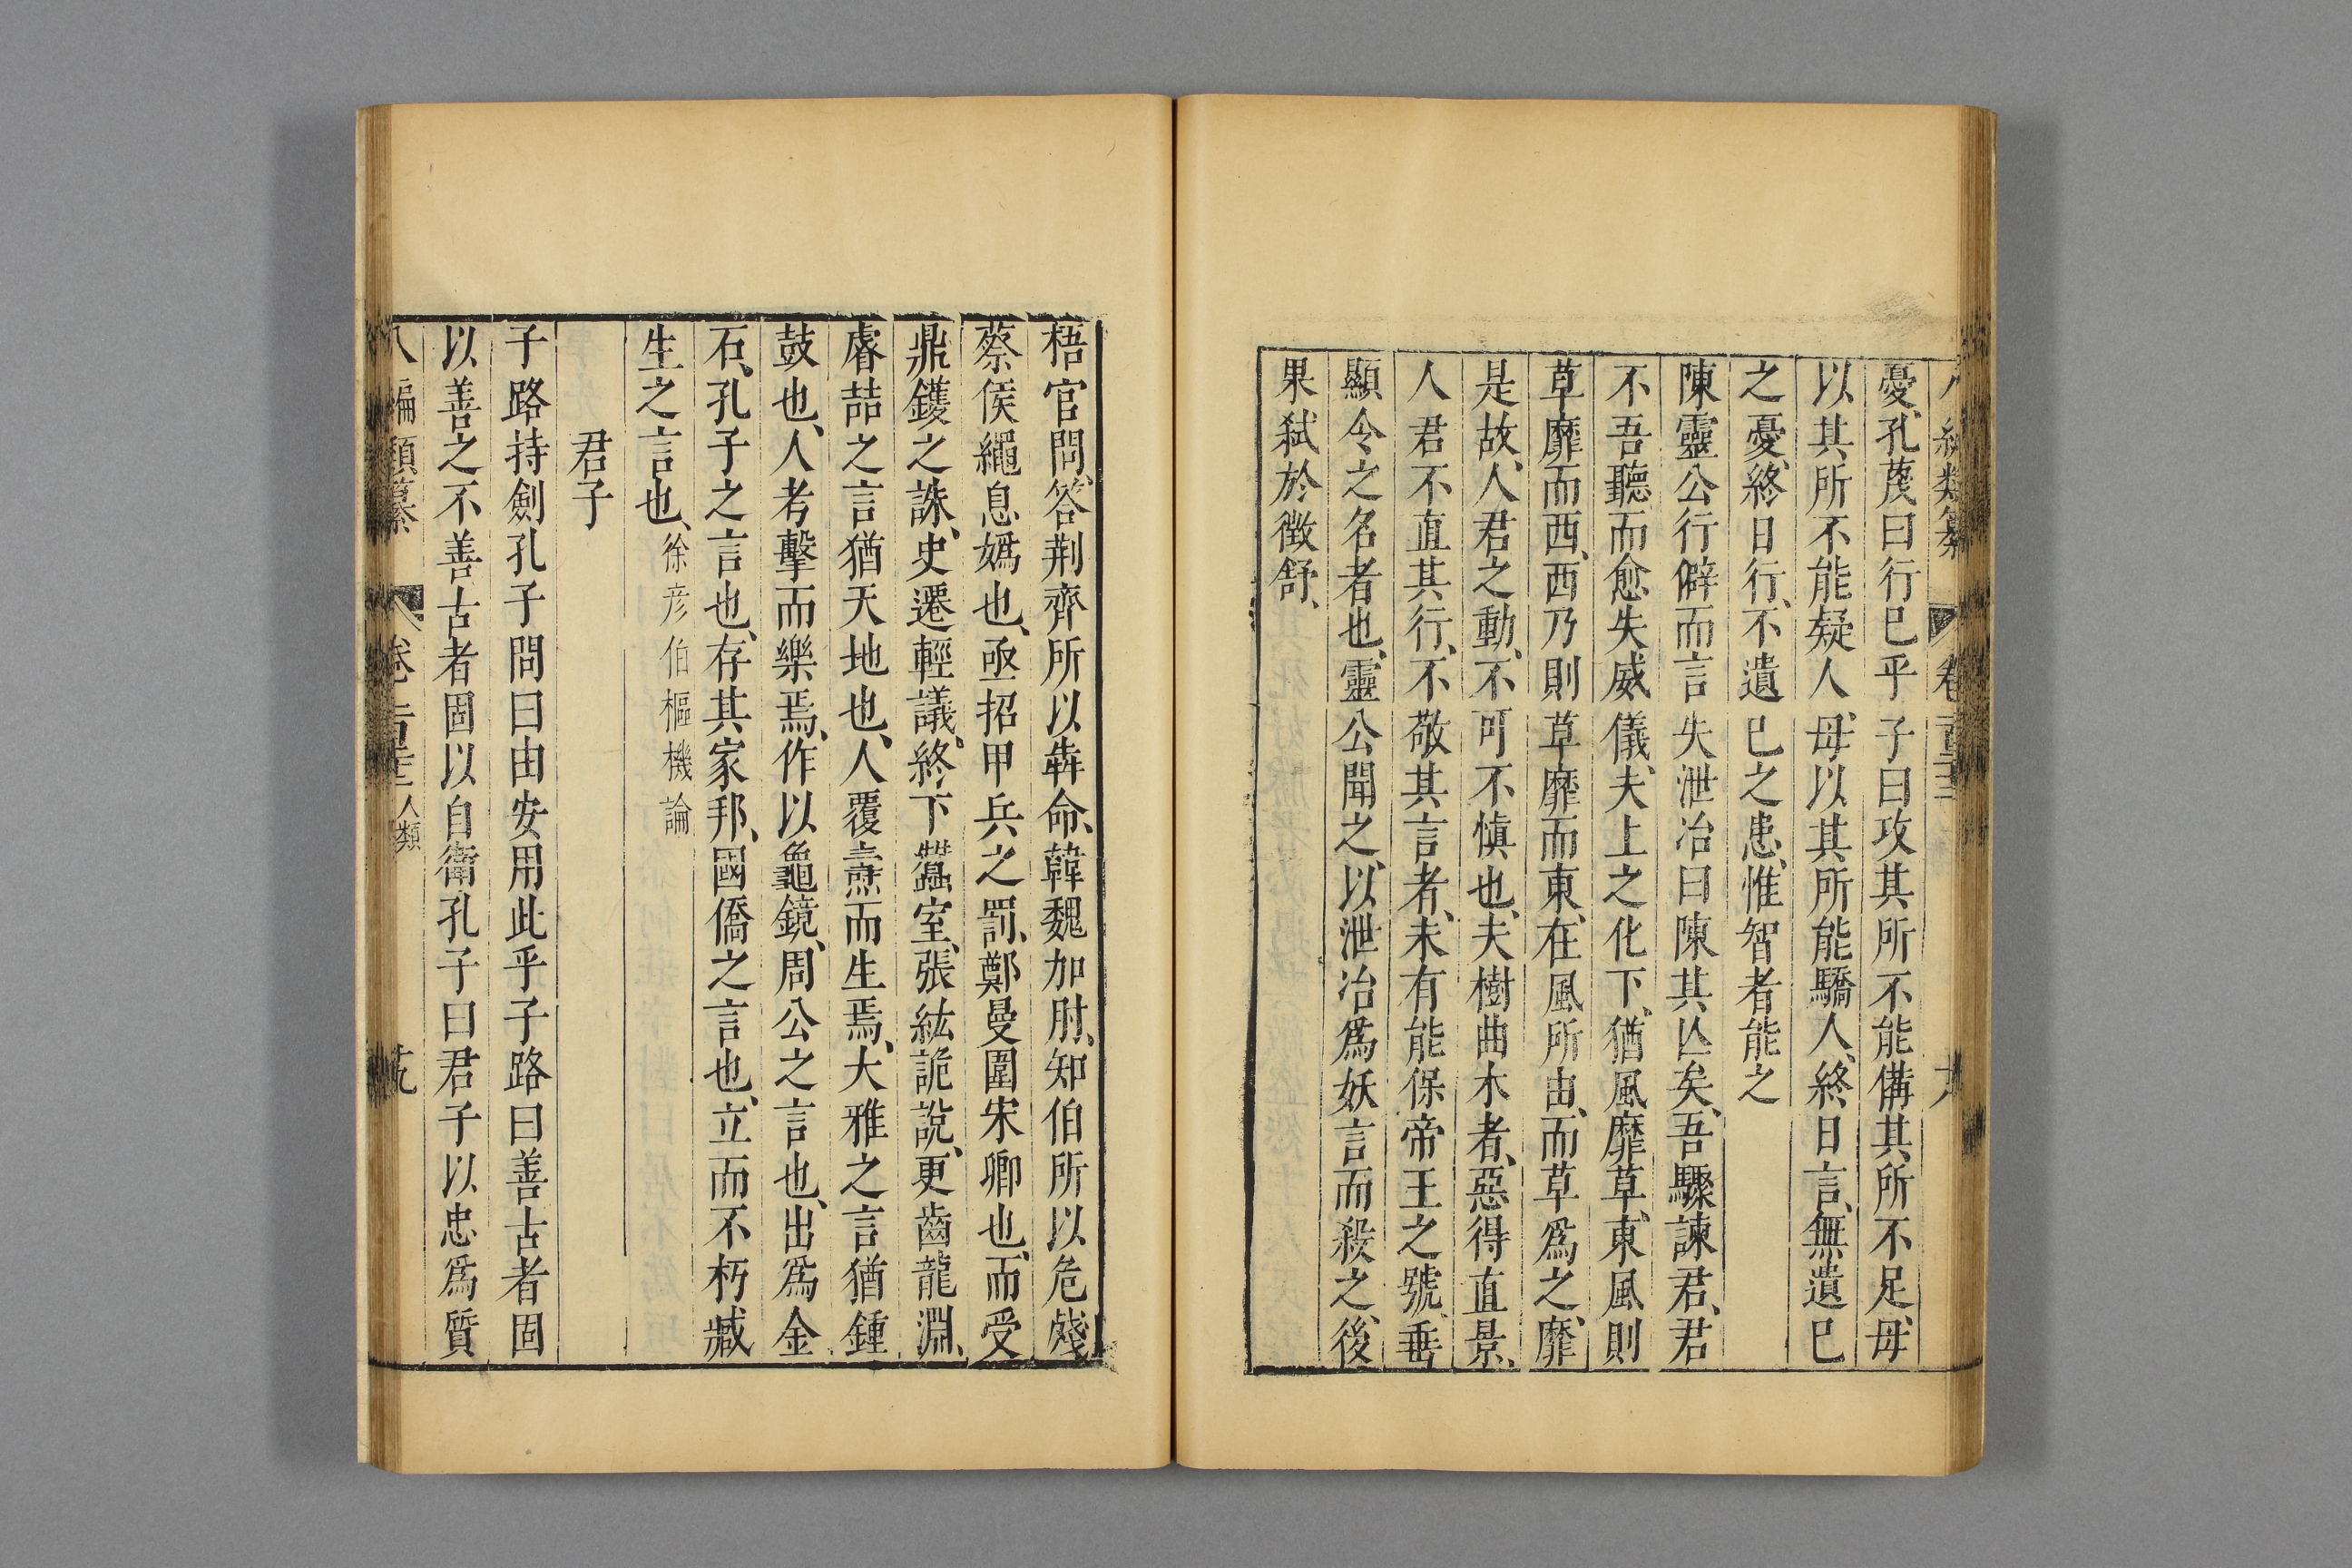 編類纂 卷
憂、孔蔑曰行已乎子曰攻其所不能備其所不足、毋
以其所不能疑人、毋以其所能驕人、終日言、無遺已
之憂、終日行、不遺已之患、惟智者能之
陳靈公行僻而言失泄冶曰陳其亾矣、吾驟諫君、君
不吾聽而愈失威儀、夫上之化下、猶風靡草、東風則
草靡而西、西乃則草靡而東、在風所由、而草爲之、靡
是故、人君之動、不可不愼也、夫樹曲木者、惡得直景、
人君不直其行、不敬其言者、未有能保帝王之號、垂
顯令之名者也、靈公聞之、以泄冶爲妖言而殺之、後
果弑於徵舒、
梧宫問、答荆齊所以犇命、韓魏加肘、知伯所以危殘
蔡侯繩息嬀也、亟招甲兵之罰、鄭曼圍宋卿也、而受
鼎鑊之誅、史遷輕議、終下蠶室、張紘詭說、更齒龍淵、
睿喆之言猶天地也、人覆燾而生焉、大雅之言猶鍾
鼓也、人考擊而樂焉、作以龜鏡、周公之言也、出爲金
石、孔子之言也、存其家邦、國僑之言也、立而不朽臧
生之言也、徐彦伯樞機論
君子
子路持劍孔子問曰由安用此乎子路曰善古者固
以善之不善古者固以自衛孔子曰君子以忠爲質
八編類纂 卷 人類